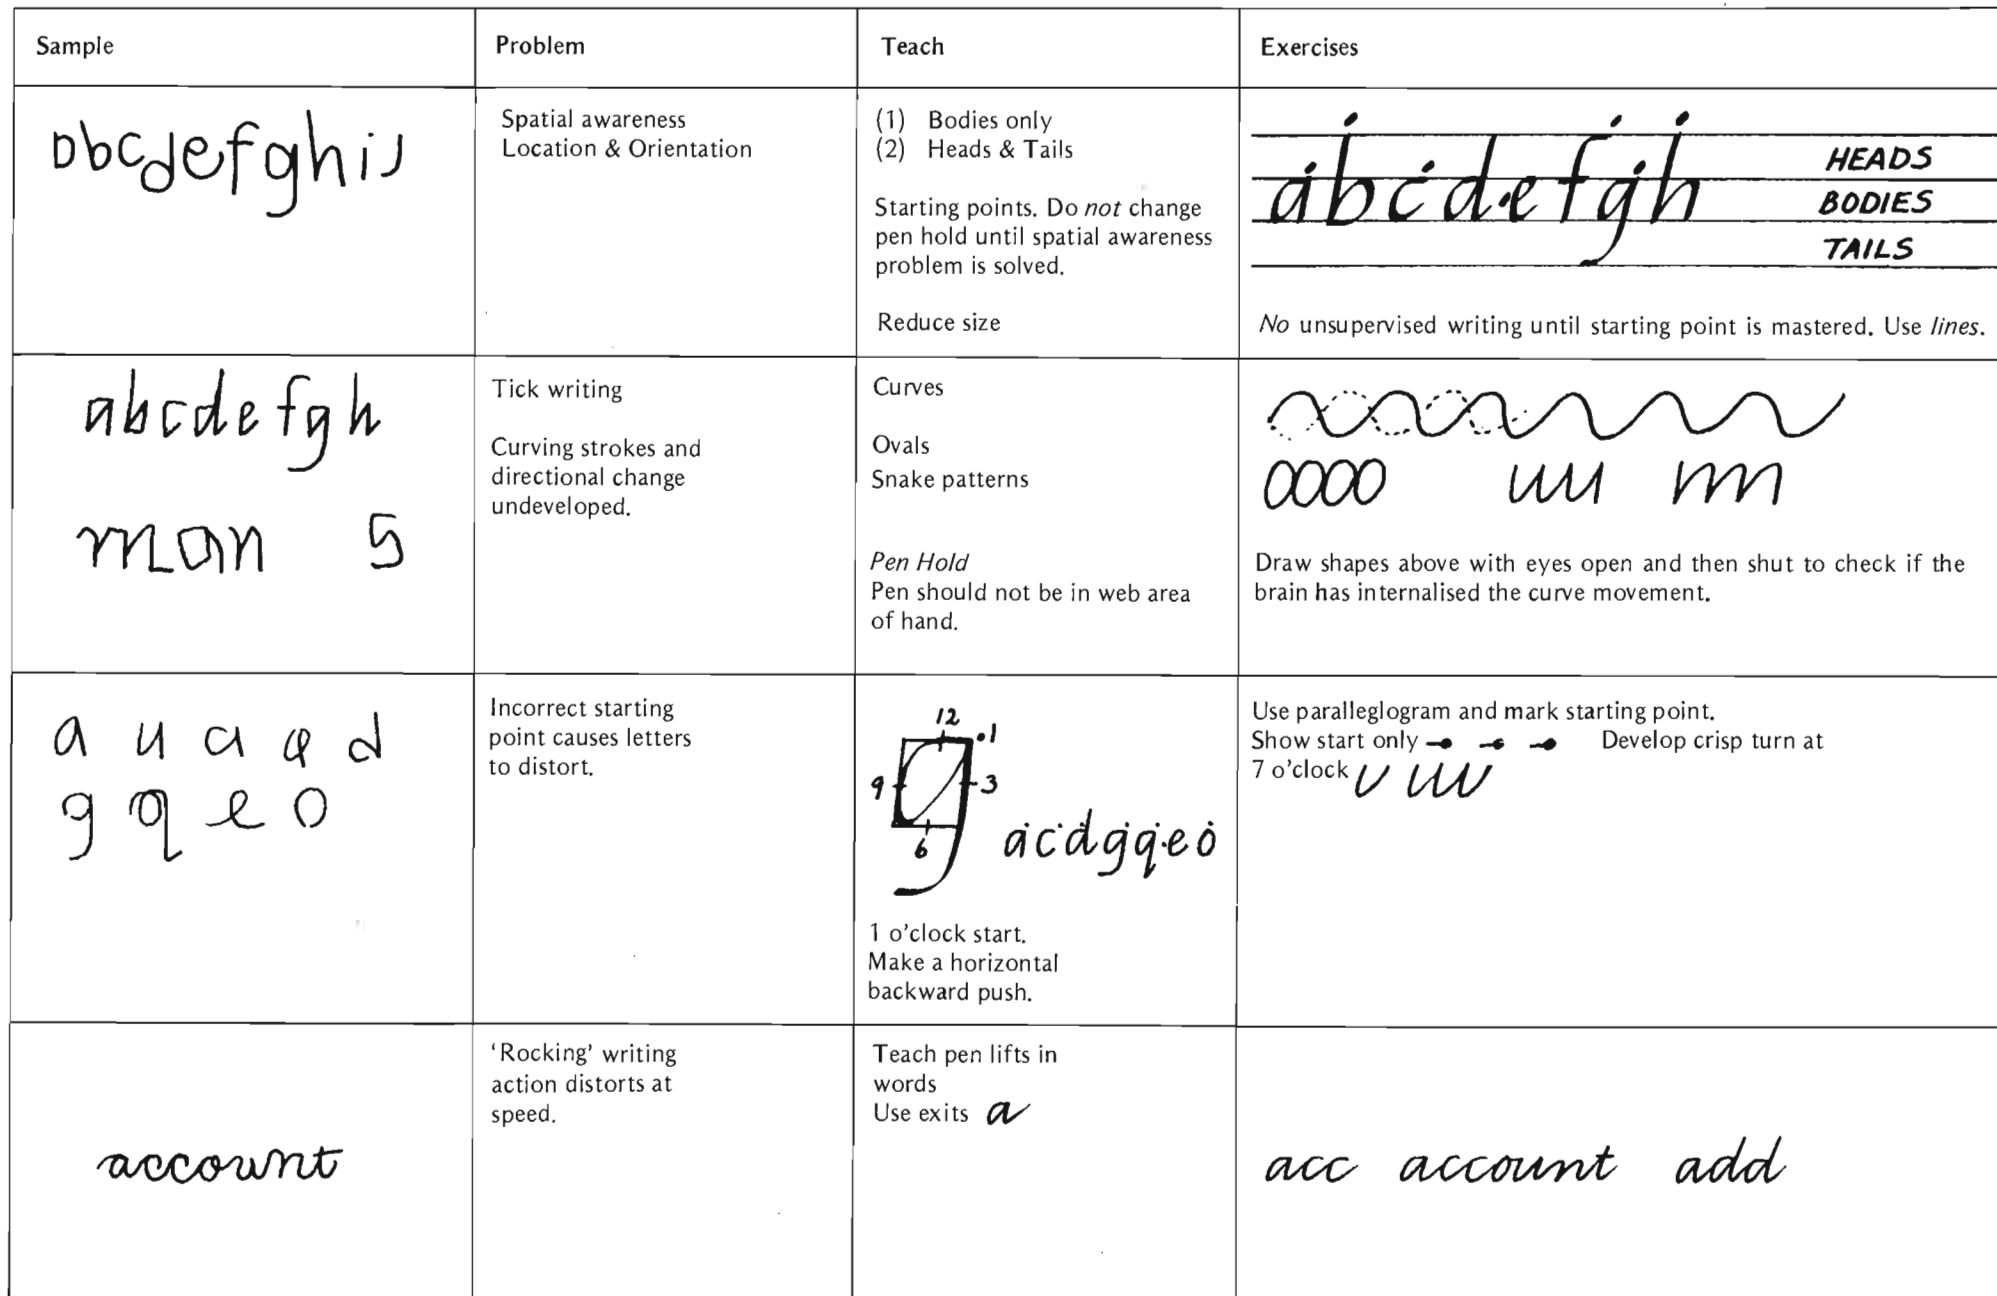 Sample
Problem
Teach
Exercises
abcdefghij
Spatial awareness
Location & Orientation
(1) Bodies only
(2) Heads & Tails
Starting points. Do not change
pen hold until spatial awareness
problem is solved.
Reduce size
abcdefgh
HEADS
BODIES
TAILS
No unsupervised writing until starting point is mastered. Use lines.
abcdefgh
man s
Tick writing
Curving strokes and
directional change
undeveloped.
Curves
Ovals
Snake patterns
Pen Hold
Pen should not be in web area
of hand.
Draw shapes above with eyes open and then shut to check if the
brain has internalised the curve movement.
a u a a d
g q e o
Incorrect starting
point causes letters
to distort.
12
.1
9
3
6
acdgqeo
1 o'clock start.
Make a horizontal
backward push.
Use paralleglogram and mark starting point.
Show start only Develop crisp turn at
7 o'clock
account
'Rocking' writing
action distorts at
speed.
Teach pen lifts in
words
Use exits a
acc account add